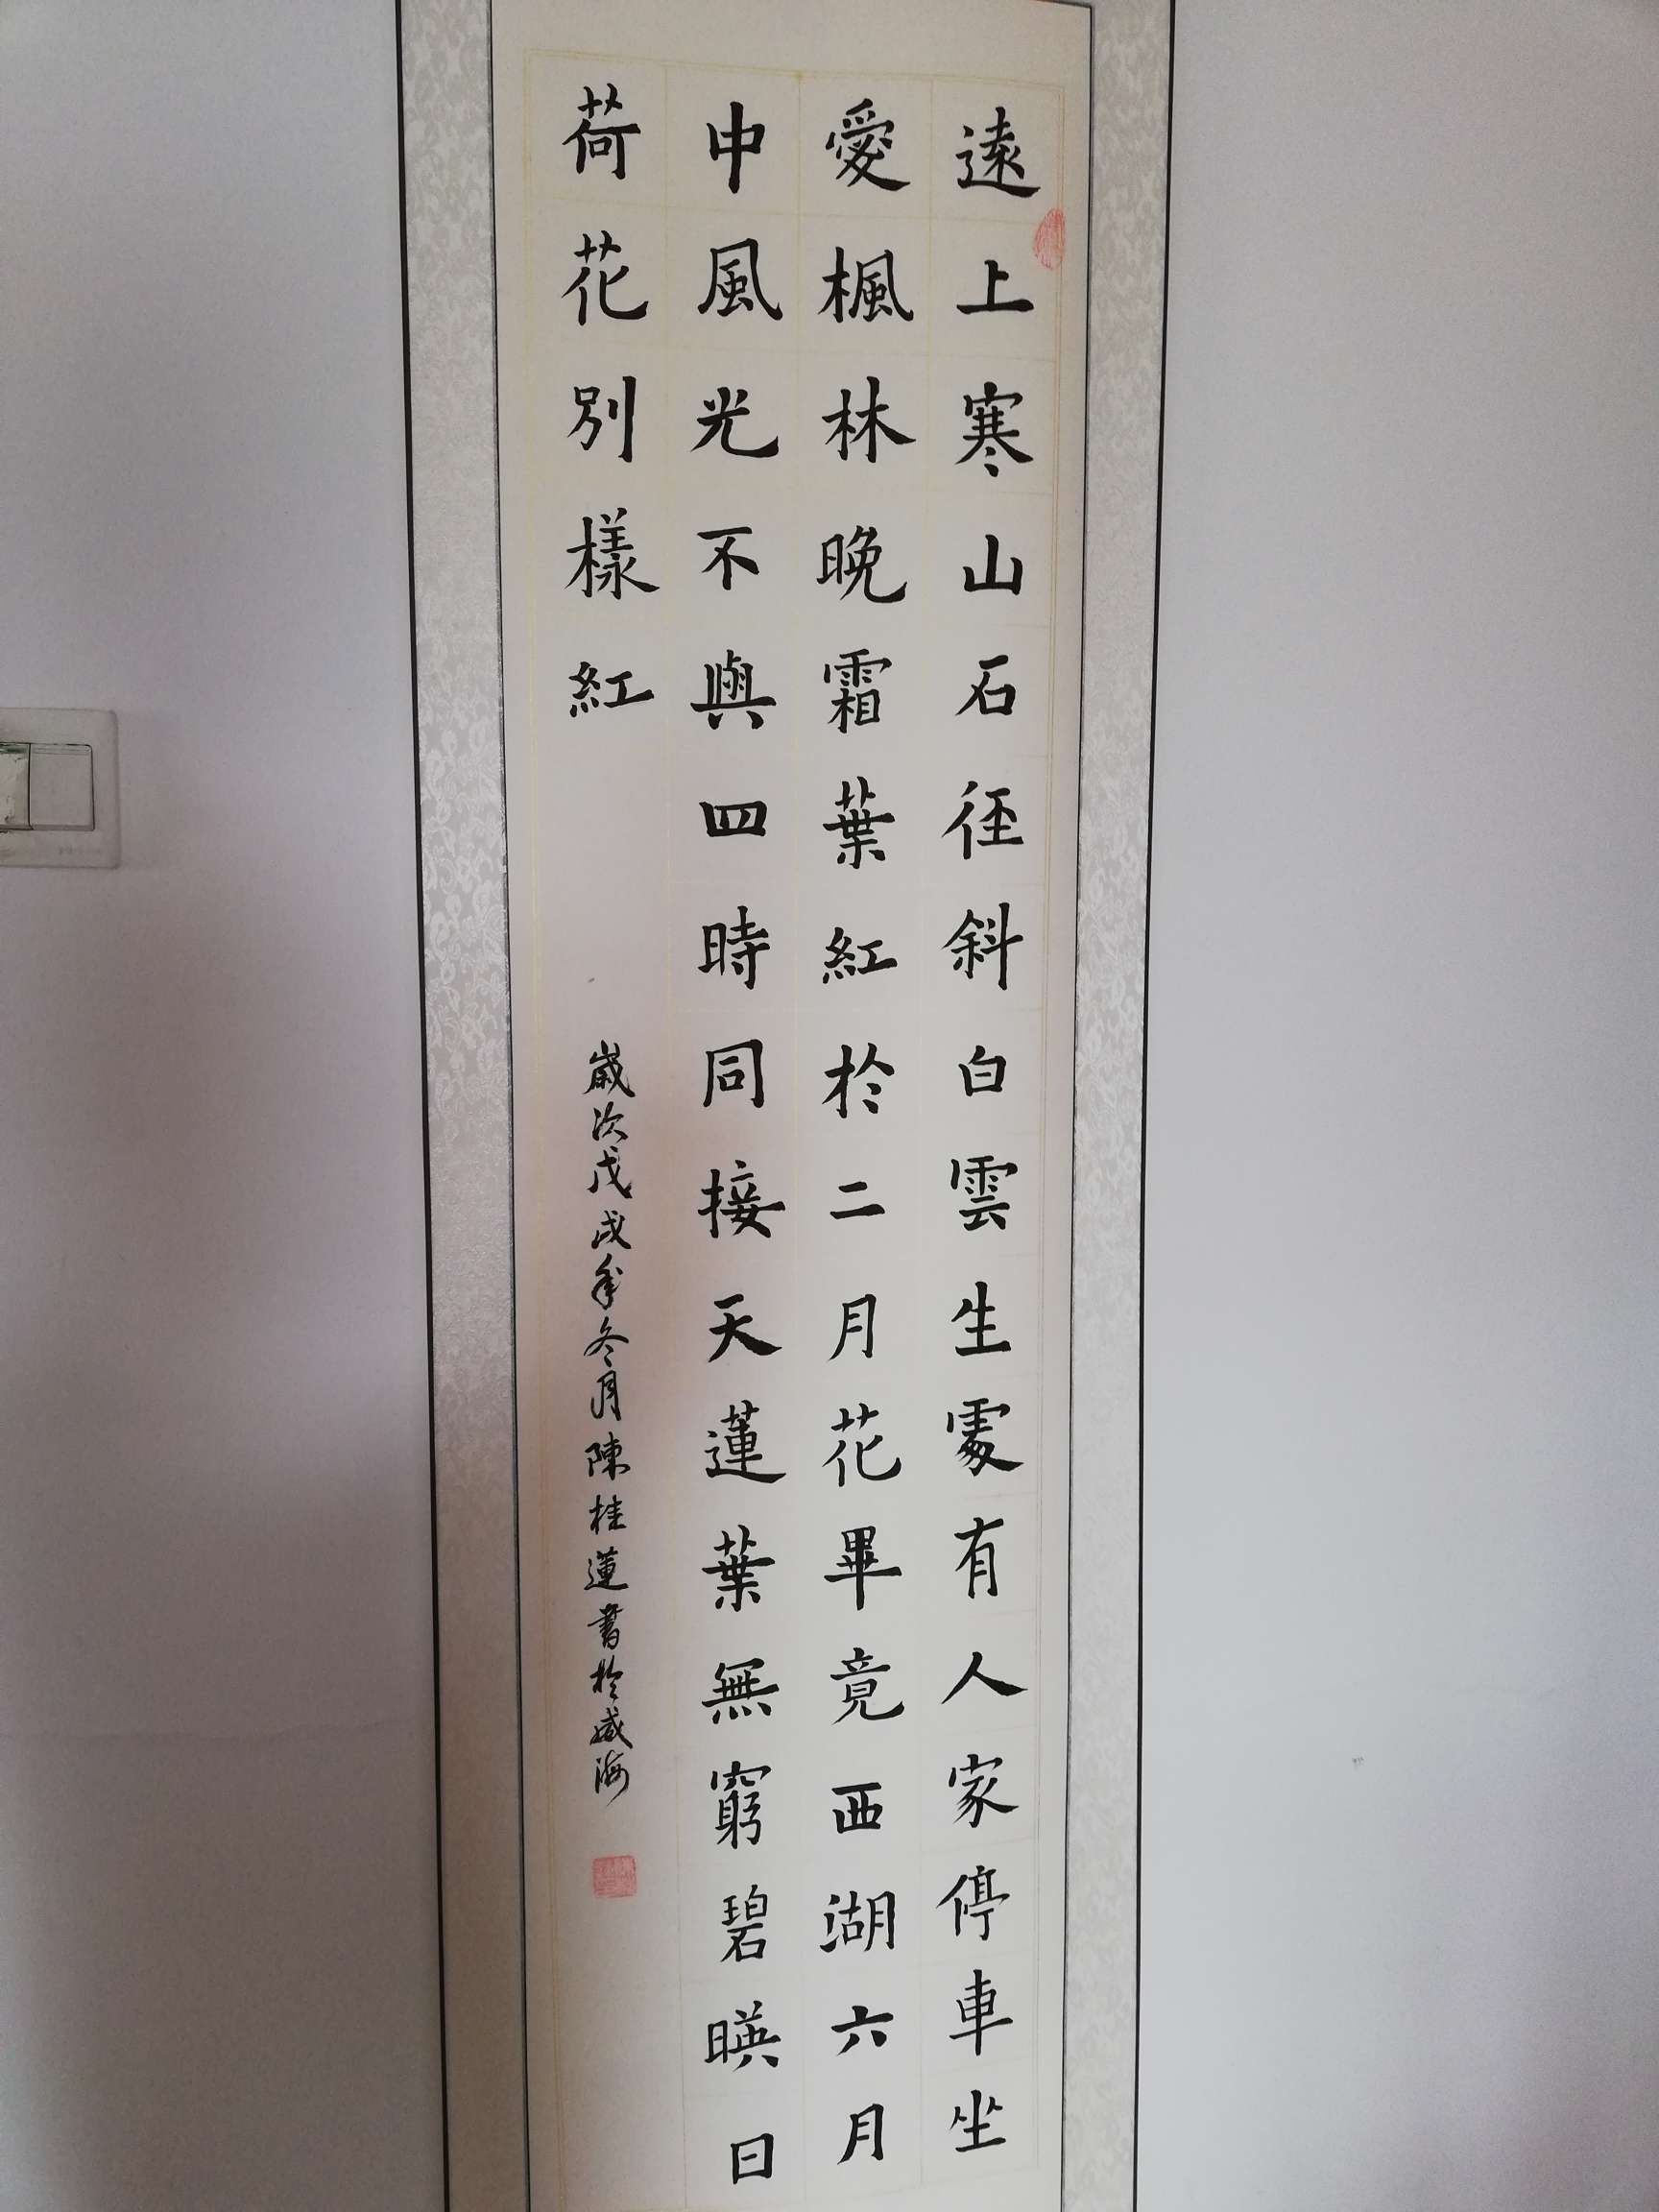 遠上寒山石徑斜白雲生處有人家停車坐
愛楓林晚霜葉紅於二月花畢竟西湖六月
中風光不與四時同接天蓮葉無窮碧暎日
荷花別樣紅
歲次戊戌年冬月陳桂蓮書於威海